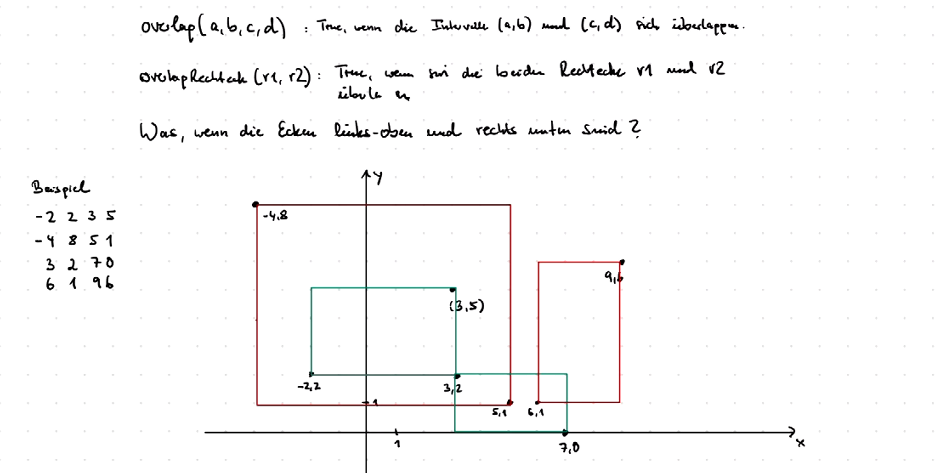 overlap(a,b,c,d) : True, wenn die Intervalle (a,b) und (c,d) sich überlappen.
overlapRechteck (r1, r2) : True, wenn die beiden Rechtecke r1 und r2
Was, wenn die Ecken links-oben und rechts unten sind?
y
Beispiel
-2 2 3 5
-4 8 5 1
3 2 7 0
6 1 9 6
-4,8
9,6
(3,5)
-2,2
3,2
1
5,1
6,1
1
7,0
x